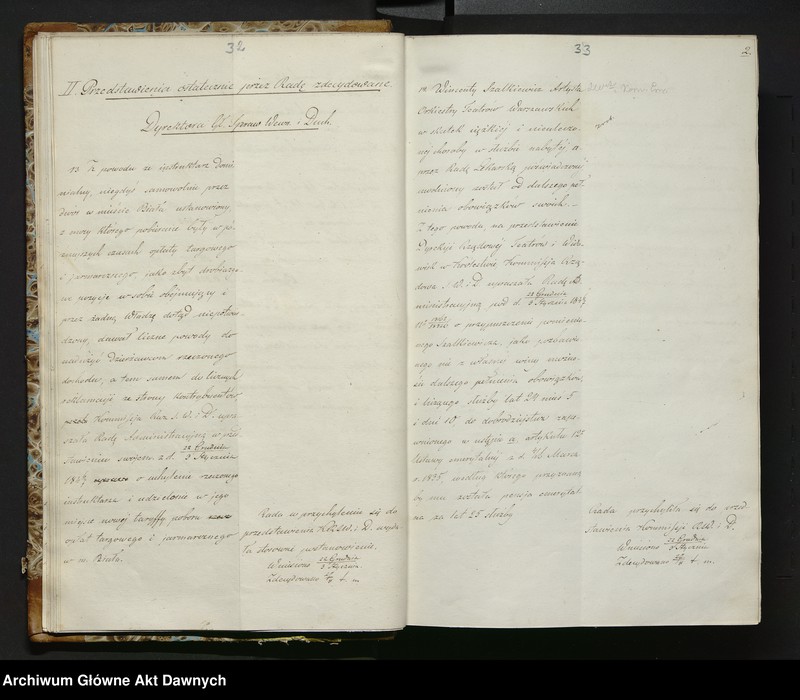 32
II. Przedstawienia ostatecznie przez Radę zdecydowane.
Dyrektora Gł. Spraw Wewn. i Duch.
13 Z powodu że instruktarz Domi-
nialny, niegdyś samowolnie przez
Dwór w mieście Biała ustanowiony,
z mocy którego pobierane były w po-
czasach opłaty targowego
i jarmarcznego, jako zbyt drobiazgo-
we pozycje w sobie obejmujący i
przez żadną Władzę dotąd niepotwier-
dzony, dawał liczne powody do
nadużyć Dzierżawcom rzeczonego
dochodu, a tem samem do licznych
reklamacji ze strony kontrybuentów
Kommissja Rz. S. W. i D. upra-
szała Radę Administracyjną w przed-
stawieniu swojem z d. 22 Grudnia
3 Stycznia
o uchylenie rzeczonego
instruktarza i udzielenie w jego
miejsce nowej taryffy poboru
opłat targowego i jarmarcznego
w m. Biała.
Rada w przychyleniu się do
przedstawienia K.R.S.W. i D. wyda-
ła stosowne postanowienie.
Wniesiono 22 Grudnia
3 Stycznia
Zdecydowano t. m.
33
Wincenty Szatkiewicz Artysta
Orkiestry Teatrów Warszawskich
w skutek ciężkiej i nieuleczo-
nej choroby w służbie nabytej a
przez Radę Lekarską poświadczonej
uwolniony został od dalszego peł-
nienia obowiązków swoich.
Z tego powodu, na przedstawienie
Dyrekcji Rządowej Teatrów i Wido-
wisk w Królestwie, Kommissja Rzą-
dowa S. W. i D. upraszała Radę Ad-
ministracyjną pod d. 22 Grudnia
3 Stycznia
o przypuszczenie pomienio-
nego Szatkiewicza, jako pozbawio-
nego nie z własnej winy możno-
ści dalszego pełnienia obowiązków,
i liczącego służby lat 24 mies. 5
i dni 10, do dobrodziejstwa zape-
wnionego w ustępie a. artykułu 12
Ustawy emerytalnej z d. Marca
r. 1835, według którego przyznaną
by mu została pensja emerytal-
na za lat 25 służby
Rada przychyliła się do przed-
stawienia Kommissji R.S.W. i D.
Wniesiono 22 Grudnia
3 Stycznia
Zdecydowano t. m.
Archiwum Główne Akt Dawnych